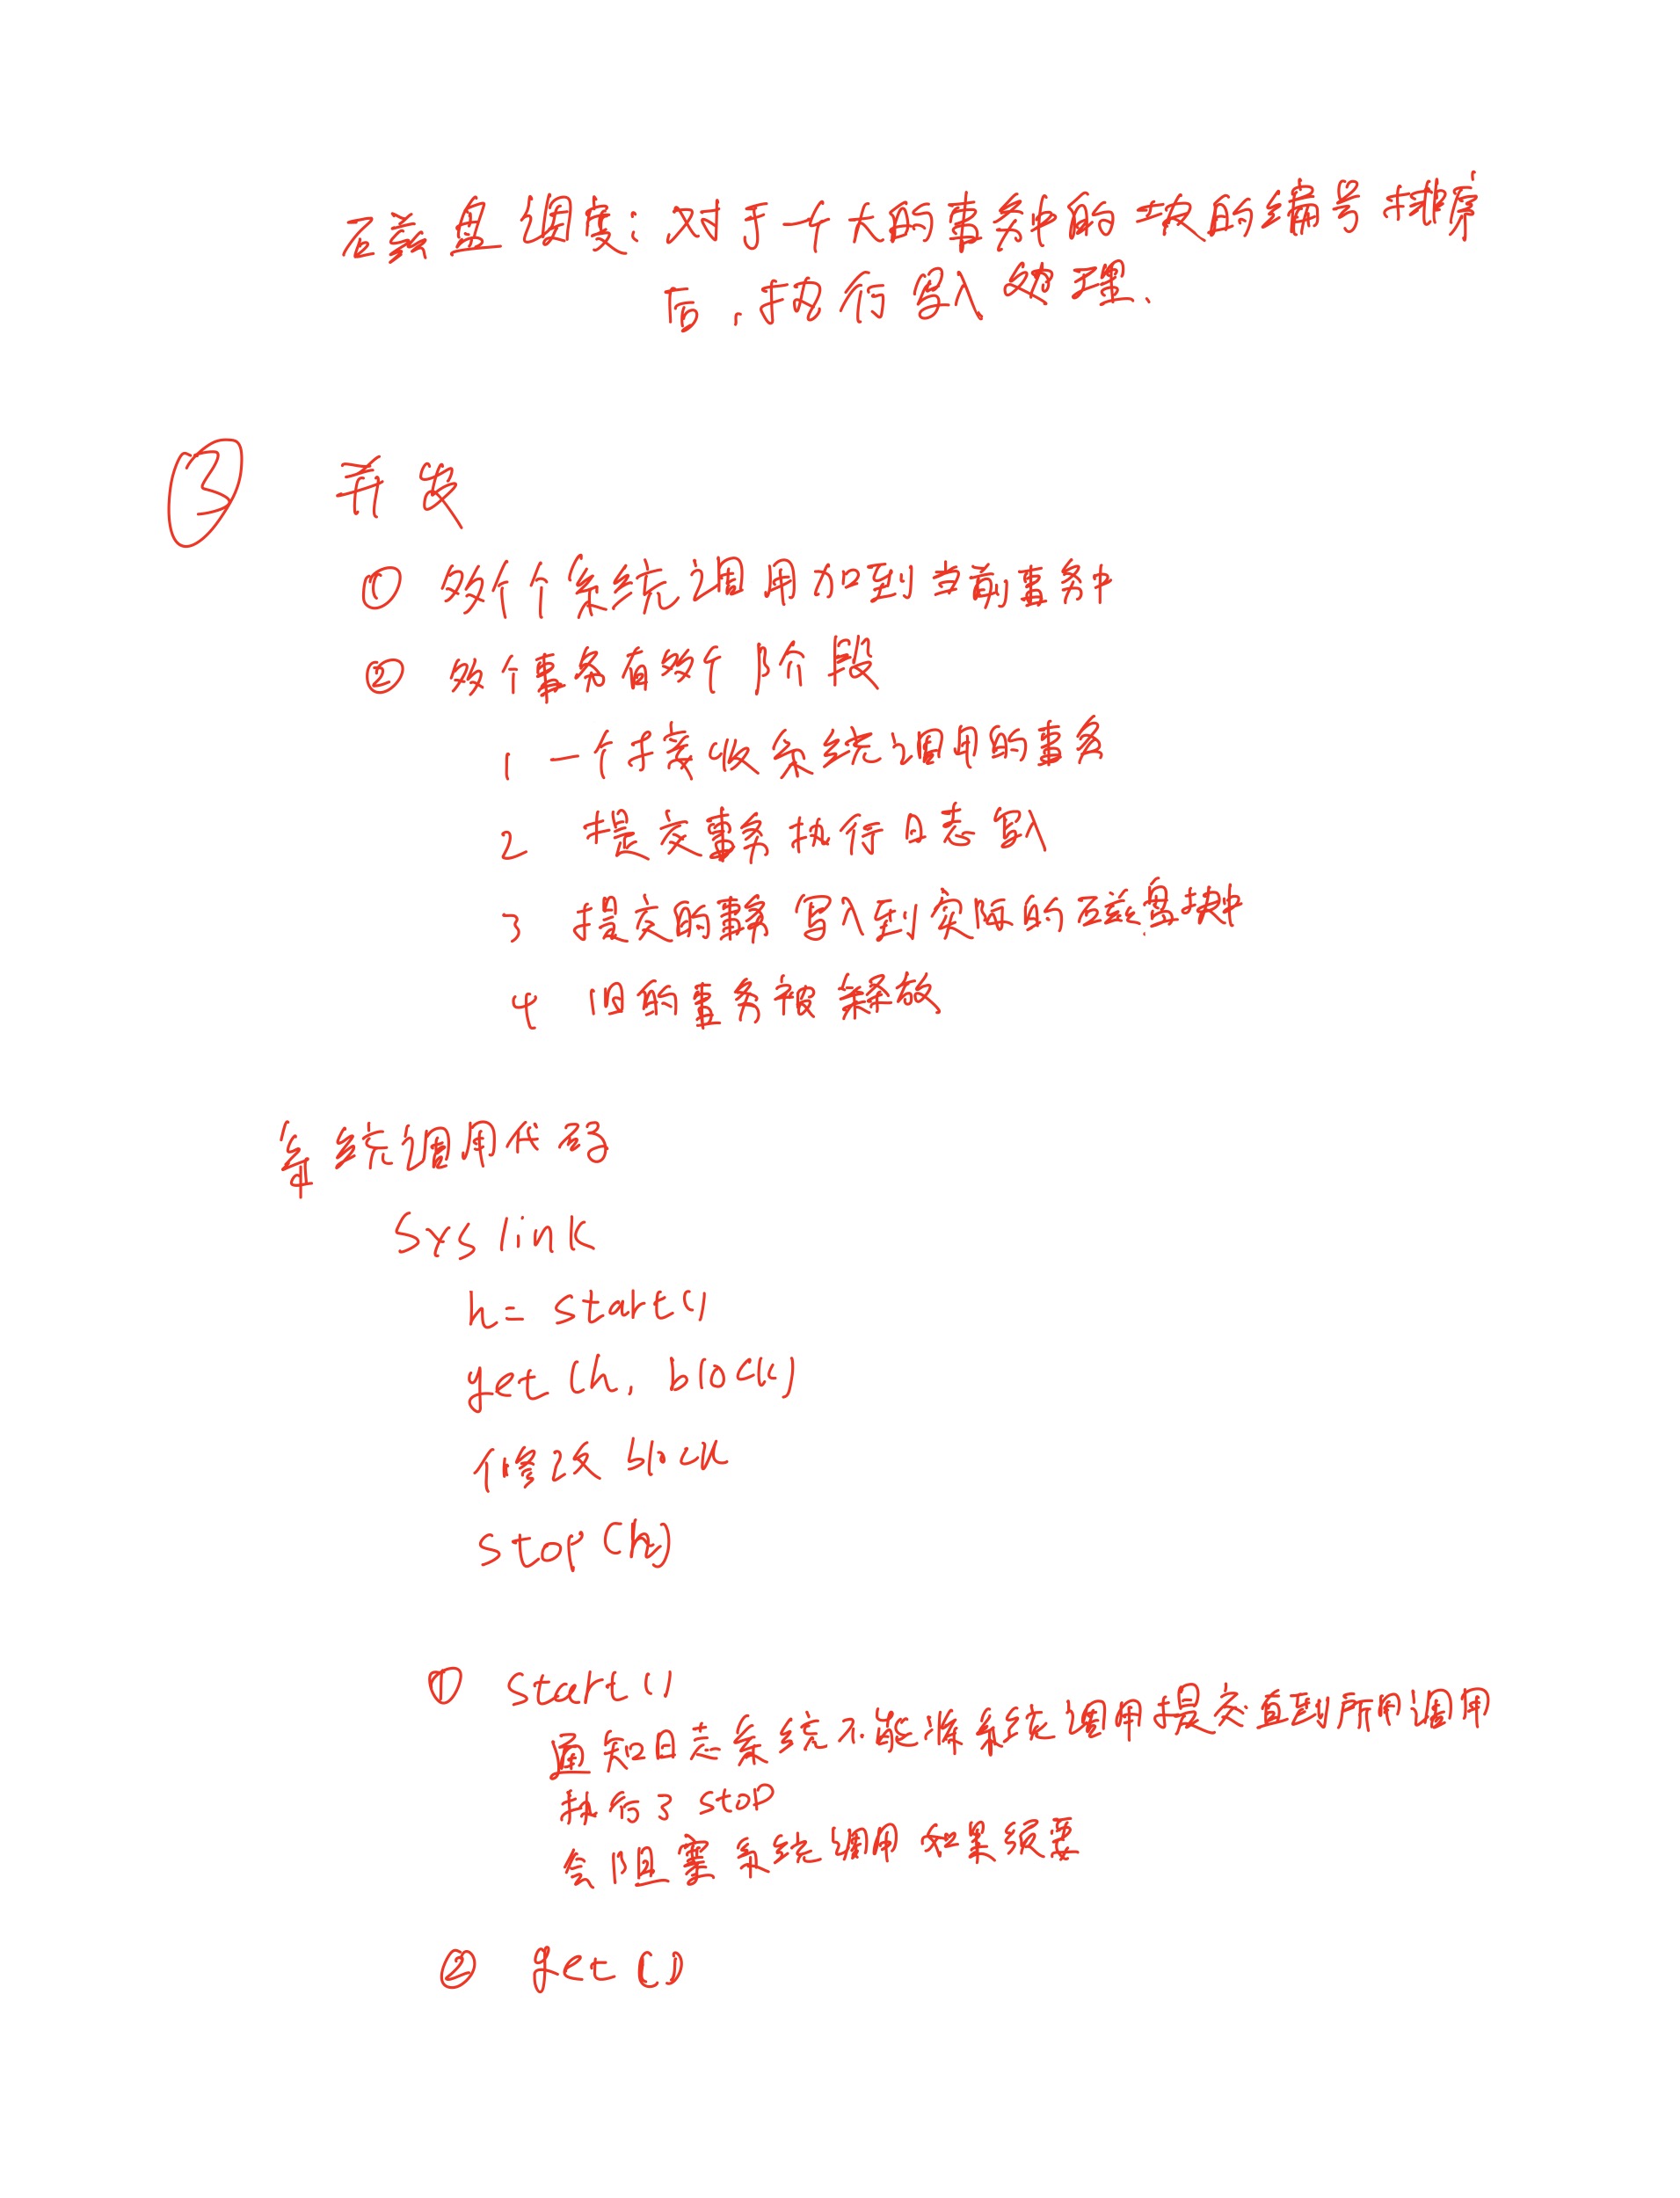 磁盘调度：对于一个大的事务中的块的编号排序
后，执行写入处理、
③ 并发
① 多个系统调用加到当前事务中
② 多个事务有多个阶段
1 一个接收系统调用的事务
2 提交事务执行日志写入
3 提交的事务写入到实际的磁盘块中
4 旧的事务被释放
系统调用代码
Sys link
h= start()
get (h, block)
修改 block
stop (h)
① start()
通知日志系统不能将系统调用提交直到所用调用
执行了 stop
会阻塞系统调用如果须要
② get ()